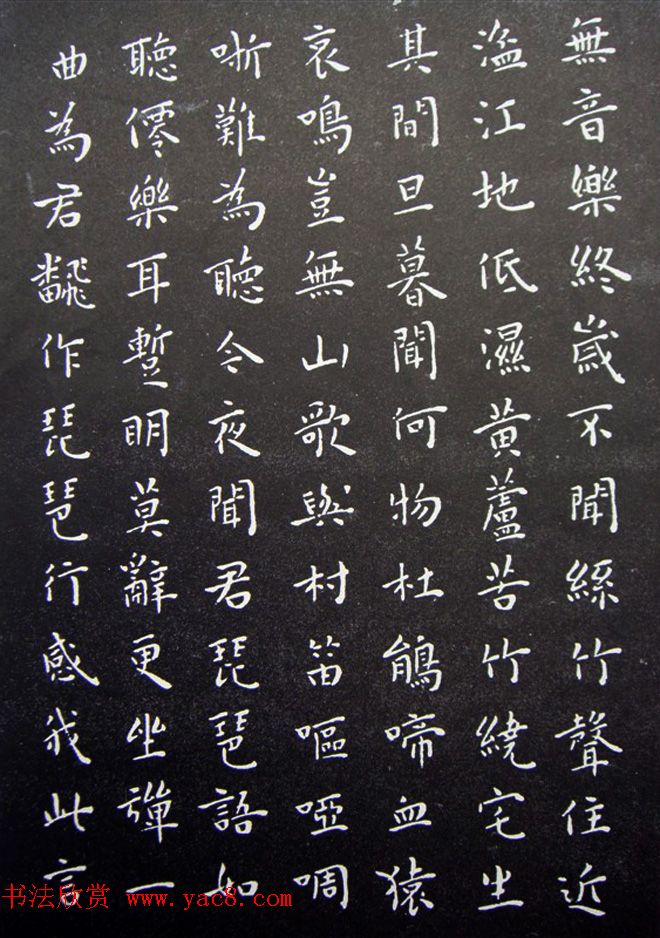 無音樂終歲不聞絲竹聲住近
湓江地低濕黃蘆苦竹繞宅生
其間旦暮聞何物杜鵑啼血猿
哀鳴豈無山歌與村笛嘔啞啁
哳難為聽今夜聞君琵琶語如
聽僊樂耳蹔明莫辭更坐彈一
曲為君飜作琵琶行感我此言
书法欣赏 www.yac8.com